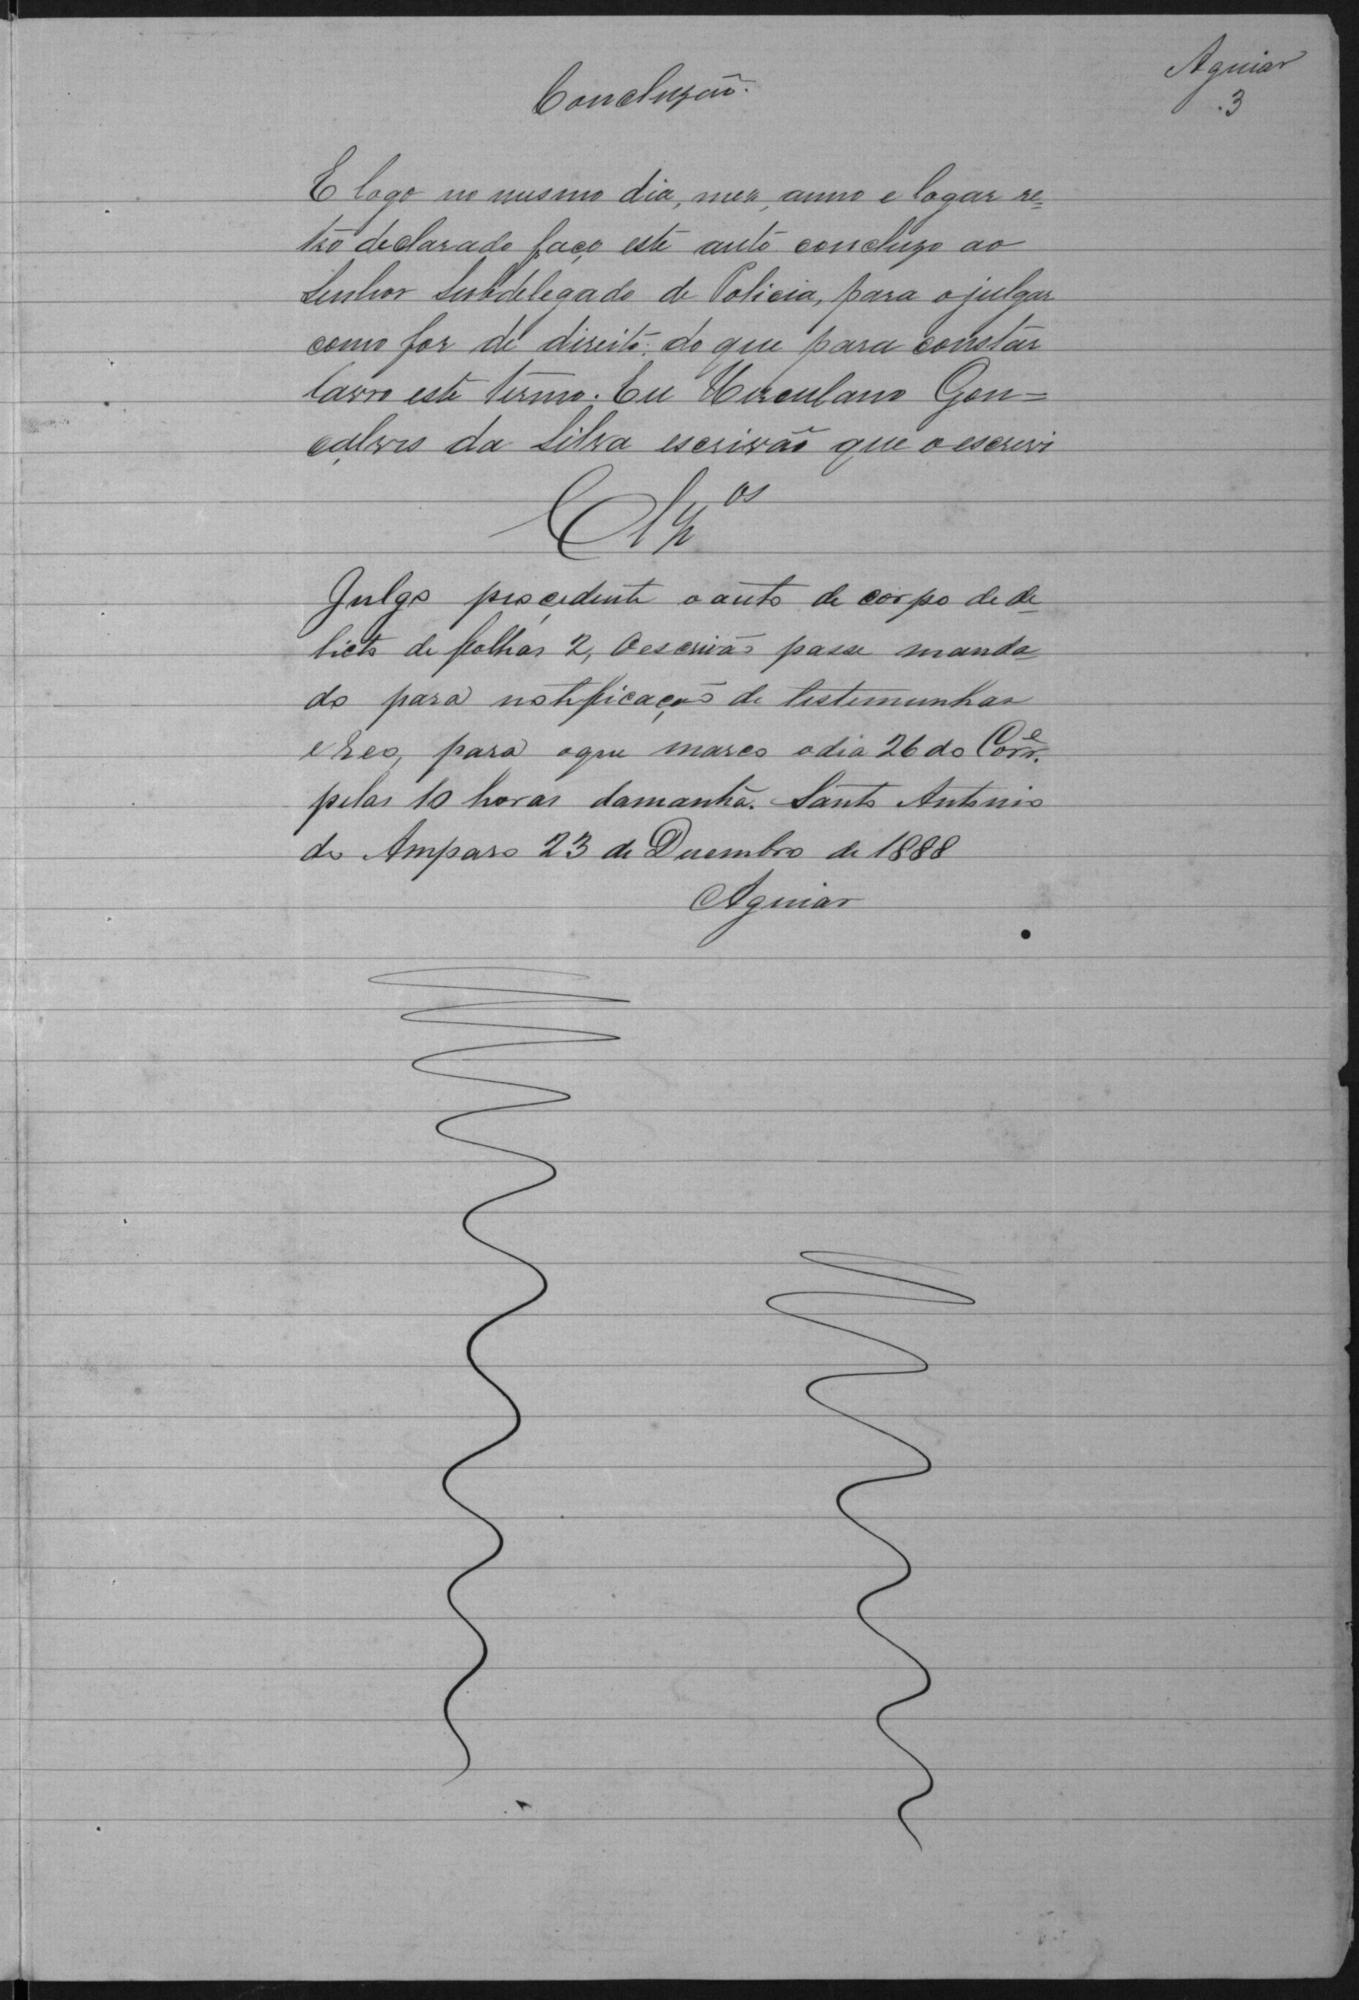 Aguiar
3
Concluzão.
E logo no mesmo dia, mez, anno e logar re=
tro declarado faço este auto concluzo ao
Senhor Subdelegado de Policia, para o julgar
como for de direito: do que para constar
lavro este termo. Eu Herculano Gon=
çalves da Silva escrivão que o escrevi
Clzos
Julgo procedente o auto de corpo de de
licto de folhas 2, O escrivão passe manda
do para notificação de testemunhas
e Reo, para o que marco o dia 26 do Corre.
pelas 10 horas da manhã. Santo Antonio
do Amparo 23 de Dezembro de 1888
Aguiar